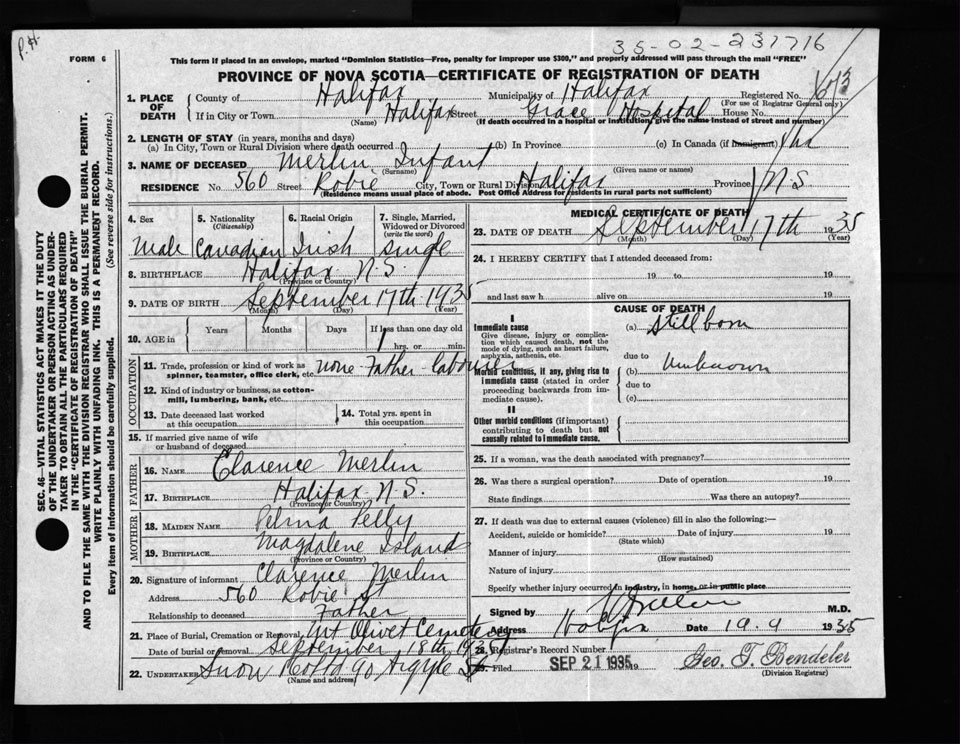 P.H.
35-02-231716
FORM 6
This form if placed in an envelope, marked "Dominion Statistics—Free, penalty for improper use $300," and properly addressed will pass through the mail "FREE"
PROVINCE OF NOVA SCOTIA—CERTIFICATE OF REGISTRATION OF DEATH
SEC. 46—VITAL STATISTICS ACT MAKES IT THE DUTY
OF THE UNDERTAKER OR PERSON ACTING AS UNDER-
TAKER TO OBTAIN ALL THE PARTICULARS REQUIRED
IN THE "CERTIFICATE OF REGISTRATION OF DEATH"
AND TO FILE THE SAME WITH THE DIVISION REGISTRAR WHO SHALL ISSUE THE BURIAL PERMIT.
WRITE PLAINLY WITH UNFADING INK. THIS IS A PERMANENT RECORD.
Every item of Information should be carefully supplied. (See reverse side for instructions.)
1. PLACE OF DEATH County of Halifax Municipality of Halifax Registered No. 1673
(For use of Registrar General only)
If in City or Town Halifax Street Grace Hospital House No.
(Name) (If death occurred in a hospital or institution, give the name instead of street and number)
2. LENGTH OF STAY (in years, months and days)
(a) In City, Town or Rural Division where death occurred (b) In Province (c) In Canada (if immigrant)
3. NAME OF DECEASED Merlin Infant
(Surname) (Given name or names)
RESIDENCE No. 560 Street Robie City, Town or Rural Division Halifax Province N S
(Residence means usual place of abode. Post Office Address for residents in rural parts not sufficient)
4. Sex 5. Nationality 6. Racial Origin 7. Single, Married,
(Citizenship) Widowed or Divorced
(write the word)
Male Canadian Irish single
8. BIRTHPLACE Halifax N.S.
(Province or Country)
9. DATE OF BIRTH September 17th 1935
(Month) (Day) (Year)
10. AGE in Years Months Days If less than one day old
hrs. or min.
OCCUPATION
11. Trade, profession or kind of work as none Father labourer
spinner, teamster, office clerk, etc.
12. Kind of industry or business, as cotton-
mill, lumbering, bank, etc.
13. Date deceased last worked 14. Total yrs. spent in
at this occupation this occupation
15. If married give name of wife
or husband of deceased
FATHER
16. NAME Clarence Merlin
17. BIRTHPLACE Halifax N.S.
(Province or Country)
MOTHER
18. MAIDEN NAME Pelly
19. BIRTHPLACE Magdalene Island
(Province or Country)
20. Signature of informant Clarence Merlin
Address 560 Robie St
Relationship to deceased Father
21. Place of Burial, Cremation or Removal Mt Olivet Cemetery
Date of burial or removal September 18th 1935
22. UNDERTAKER Snow & Co Ltd 90 Argyle St
(Name and address)
MEDICAL CERTIFICATE OF DEATH
23. DATE OF DEATH September 17th 1935
(Month) (Day) (Year)
24. I HEREBY CERTIFY that I attended deceased from:
19 to 19
and last saw h alive on 19
CAUSE OF DEATH
I
Immediate cause (a) Stillborn
Give disease, injury or complica-
tion which caused death, not the
mode of dying, such as heart failure,
asphyxia, asthenia, etc.
due to
Morbid conditions, if any, giving rise to (b) Unknown
immediate cause (stated in order due to
proceeding backwards from im- (c)
mediate cause).
II
Other morbid conditions (if important)
contributing to death but not
causally related to immediate cause.
25. If a woman, was the death associated with pregnancy?
26. Was there a surgical operation? Date of operation 19
State findings Was there an autopsy?
27. If death was due to external causes (violence) fill in also the following:—
Accident, suicide or homicide? Date of injury 19
(State which)
Manner of injury
(How sustained)
Nature of injury
Specify whether injury occurred in industry, in home, or in public place
Signed by M.D.
Address Halifax Date 19.9 1935
28. Registrar's Record Number
29. Filed SEP 21 1935 19 Geo. T. Bendeler
(Division Registrar)